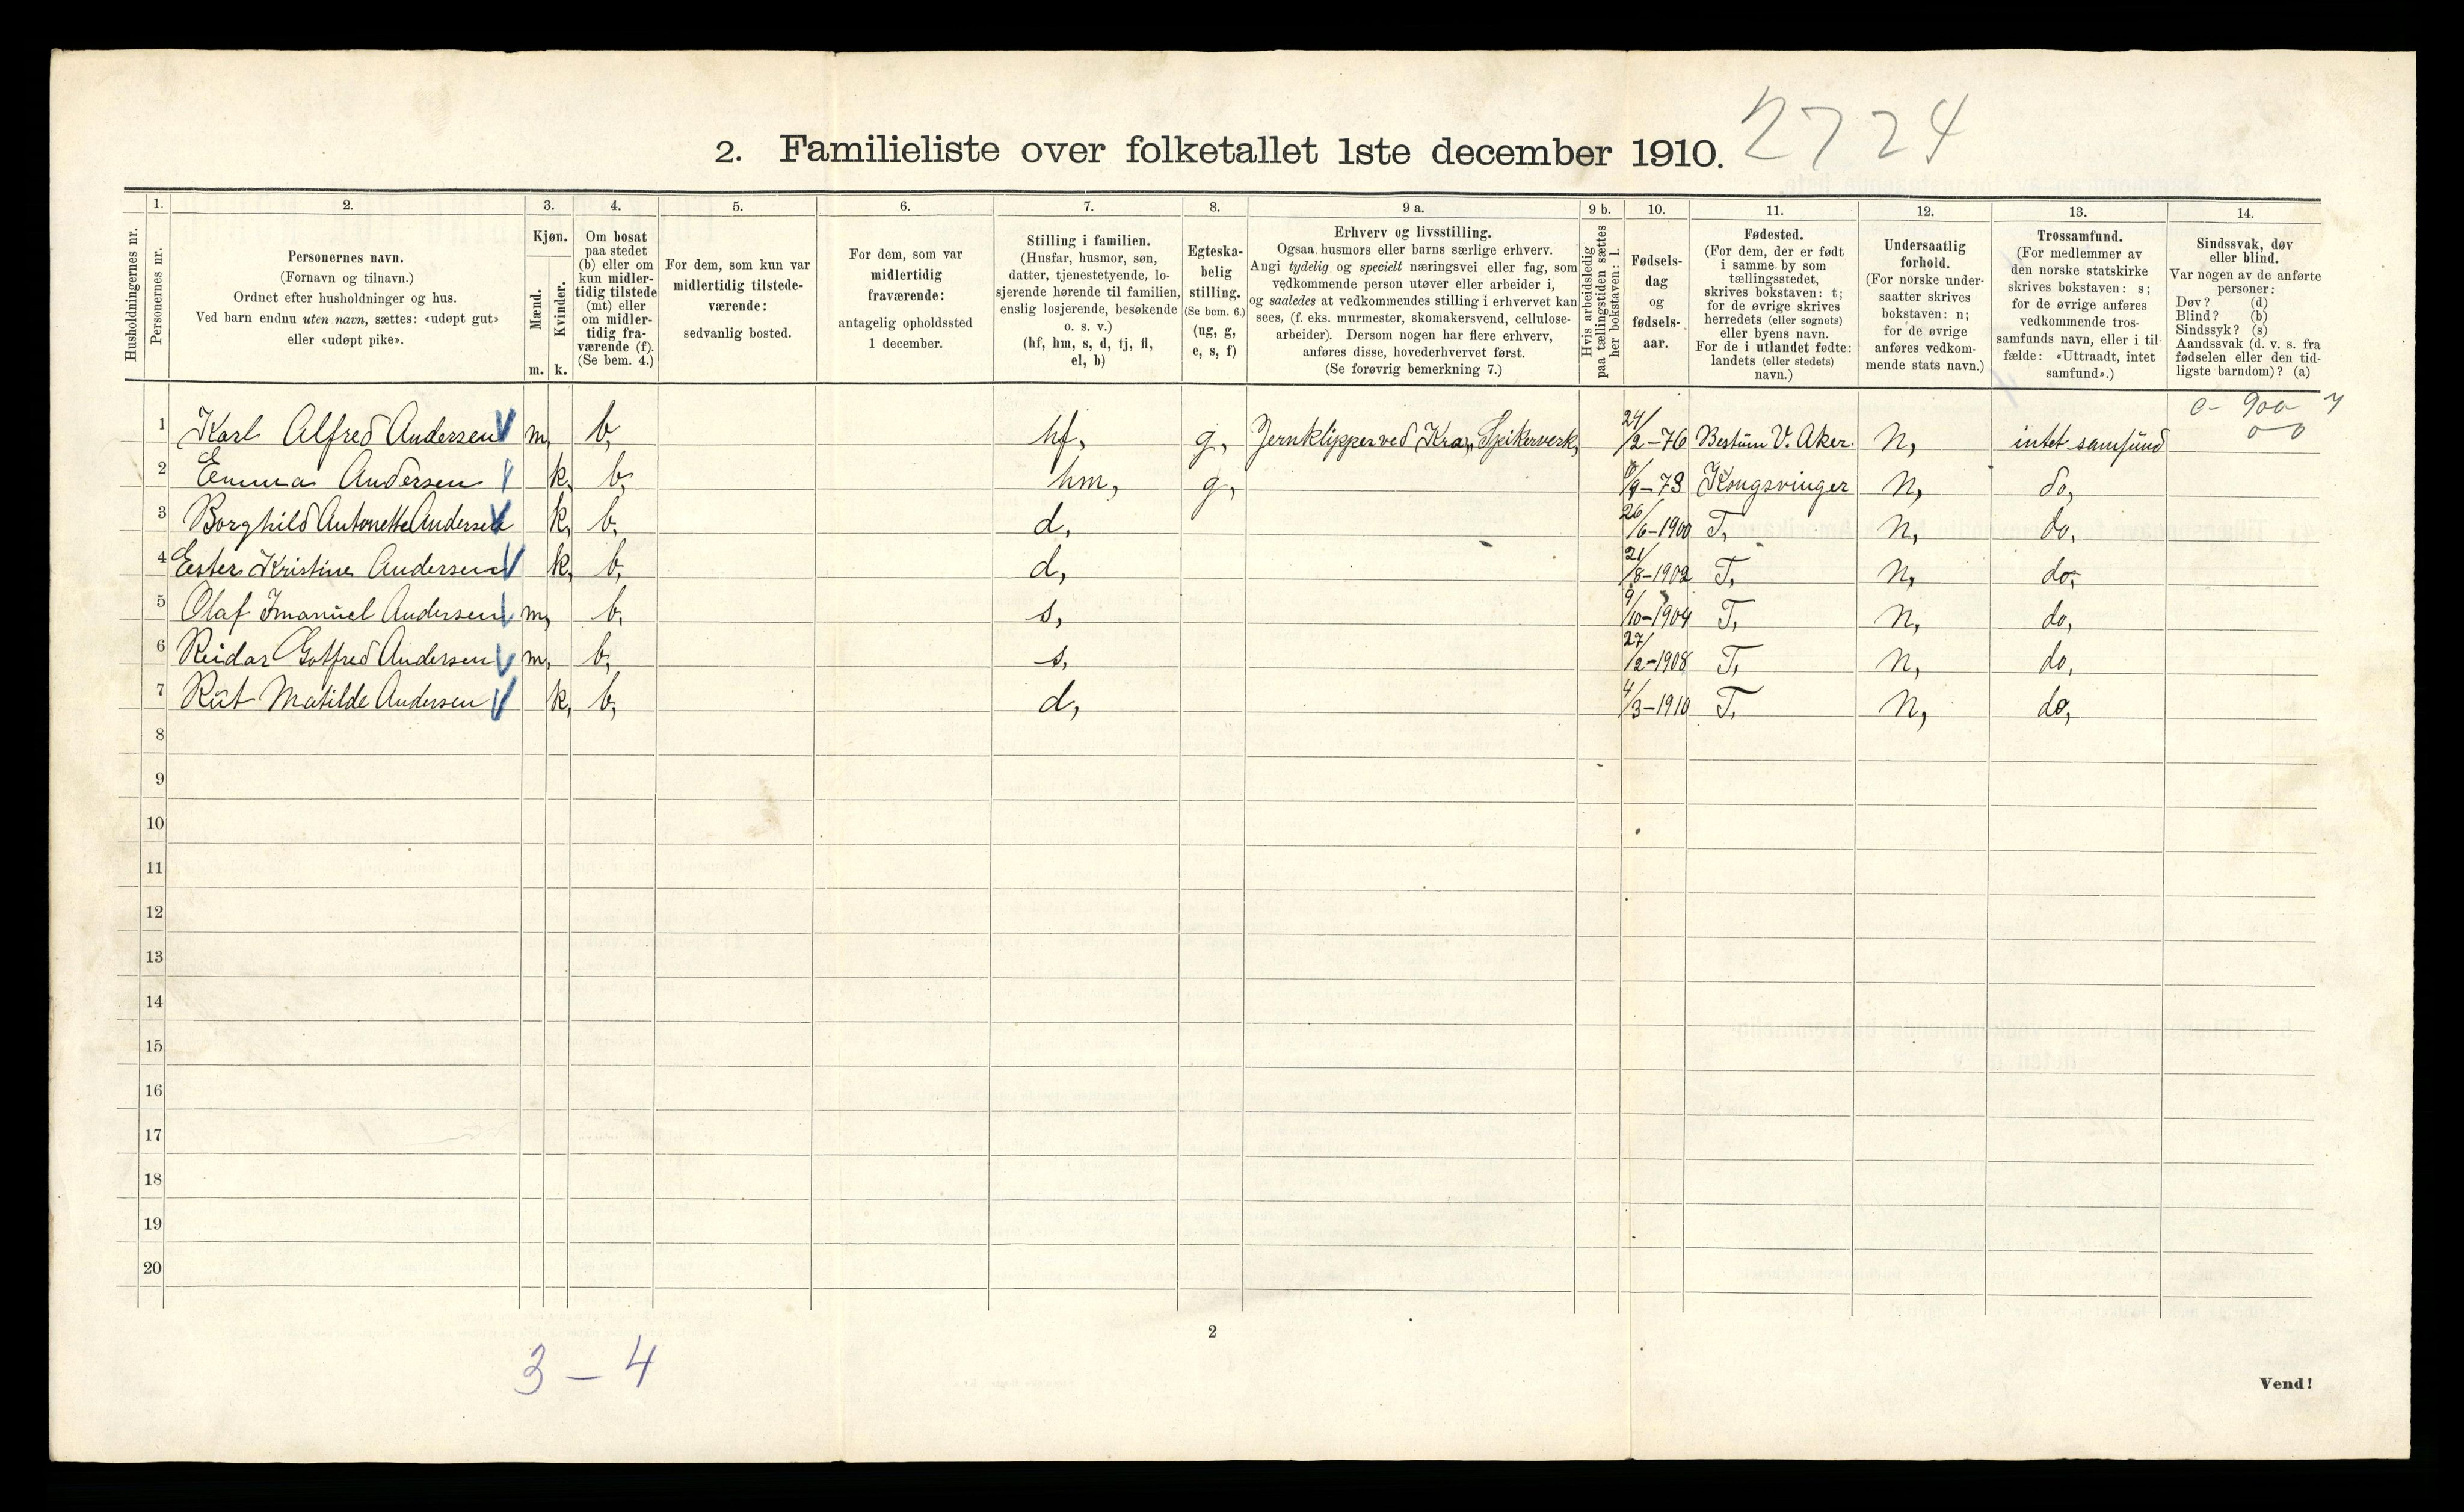 2724
2. Familieliste over folketallet 1ste december 1910.
Husholdningernes nr.
1.
Personernes nr.
2.
Personernes navn.
(Fornavn og tilnavn.)
Ordnet efter husholdninger og hus.
Ved barn endnu uten navn, sættes: «udøpt gut»
eller «udøpt pike».
3.
Kjøn.
Mænd.
Kvinder.
m. k.
4.
Om bosat
paa stedet
(b) eller om
kun midler-
tidig tilstede
(mt) eller
om midler-
tidig fra-
værende (f).
(Se bem. 4.)
5.
For dem, som kun var
midlertidig tilstede-
værende:
sedvanlig bosted.
6.
For dem, som var
midlertidig
fraværende:
antagelig opholdssted
1 december.
7.
Stilling i familien.
(Husfar, husmor, søn,
datter, tjenestetyende, lo-
sjerende hørende til familien,
enslig losjerende, besøkende
o. s. v.)
(hf, hm, s, d, tj, fl,
el, b)
8.
Egteska-
belig
stilling.
(Se bem. 6.)
(ug, g,
e, s, f)
9 a.
Erhverv og livsstilling.
Ogsaa husmors eller barns særlige erhverv.
Angi tydelig og specielt næringsvei eller fag, som
vedkommende person utøver eller arbeider i,
og saaledes at vedkommendes stilling i erhvervet kan
sees, (f. eks. murmester, skomakersvend, cellulose-
arbeider). Dersom nogen har flere erhverv,
anføres disse, hovederhvervet først.
(Se forøvrig bemerkning 7.)
9 b.
Hvis arbeidsledig
paa tællingstiden sættes
her bokstaven: l.
10.
Fødsels-
dag
og
fødsels-
aar.
11.
Fødested.
(For dem, der er født
i samme by som
tællingsstedet,
skrives bokstaven: t;
for de øvrige skrives
herredets (eller sognets)
eller byens navn.
For de i utlandet fødte:
landets (eller stedets)
navn.)
12.
Undersaatlig
forhold.
(For norske under-
saatter skrives
bokstaven: n;
for de øvrige
anføres vedkom-
mende stats navn.)
13.
Trossamfund.
(For medlemmer av
den norske statskirke
skrives bokstaven: s;
for de øvrige anføres
vedkommende tros-
samfunds navn, eller i til-
fælde: «Uttraadt, intet
samfund».)
14.
Sindssvak, døv
eller blind.
Var nogen av de anførte
personer:
Døv? (d)
Blind? (b)
Sindssyk? (s)
Aandssvak (d. v. s. fra
fødselen eller den tid-
ligste barndom)? (a)
1 Karl Alfred Andersen m, b, hf, g, Jernklipper ved Kra., Spikerverk, 24/2-76 Bestum V. Aker. N, intet samfund
2 Emma Andersen k, b, hm, g, /9-73 Kongsvinger N, do,
3 Borghild Antonette Andersen k, b, d, 26/6-1900 T, N, do,
4 Ester Kristine Andersen k, b, d, 21/8-1902 T, N, do,
5 Olaf Imanuel Andersen m, b, s, 9/10-1904 T, N, do,
6 Reidar Gotfred Andersen m, b, s, 27/2-1908 T, N, do,
7 Rut Matilde Andersen k, b, d, 4/3-1910 T, N, do,
8
9
10
11
12
13
14
15
16
17
18
19
20
2
3 – 4
Vend!